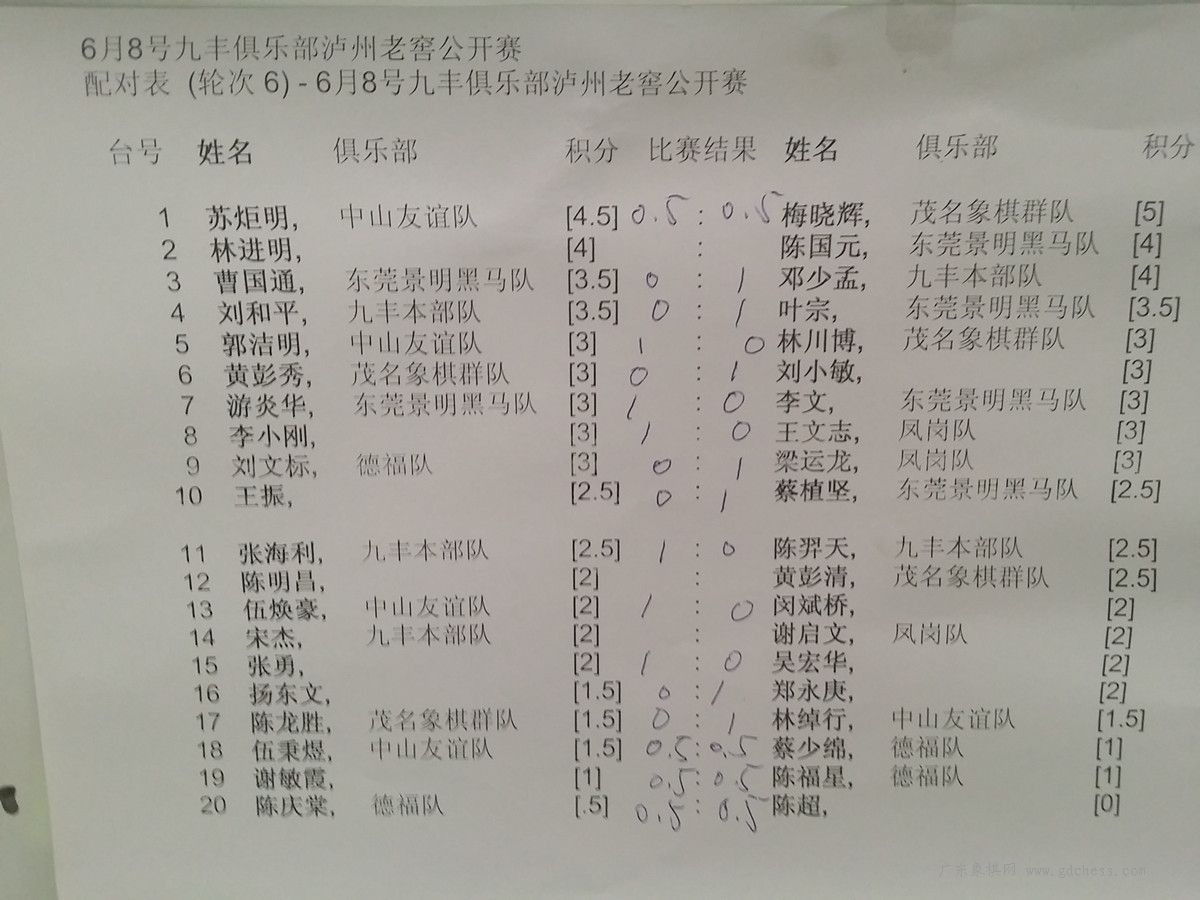 6月8号九丰俱乐部泸州老窖公开赛
配对表 (轮次 6) - 6月8号九丰俱乐部泸州老窖公开赛
台号 姓名 俱乐部 积分 比赛结果 姓名 俱乐部 积分
1 苏炬明, 中山友谊队 [4.5] 0.5 : 0.5 梅晓辉, 茂名象棋群队 [5]
2 林进明, [4] : 陈国元, 东莞景明黑马队 [4]
3 曹国通, 东莞景明黑马队 [3.5] 0 : 1 邓少孟, 九丰本部队 [4]
4 刘和平, 九丰本部队 [3.5] 0 : 1 叶宗, 东莞景明黑马队 [3.5]
5 郭洁明, 中山友谊队 [3] 1 : 0 林川博, 茂名象棋群队 [3]
6 黄彭秀, 茂名象棋群队 [3] 0 : 1 刘小敏, [3]
7 游炎华, 东莞景明黑马队 [3] 1 : 0 李文, 东莞景明黑马队 [3]
8 李小刚, [3] 1 : 0 王文志, 凤岗队 [3]
9 刘文标, 德福队 [3] 0 : 1 梁运龙, 凤岗队 [3]
10 王振, [2.5] 0 : 1 蔡植坚, 东莞景明黑马队 [2.5]
11 张海利, 九丰本部队 [2.5] 1 : 0 陈羿天, 九丰本部队 [2.5]
12 陈明昌, [2] : 黄彭清, 茂名象棋群队 [2.5]
13 伍焕豪, 中山友谊队 [2] 1 : 0 闵斌桥, [2]
14 宋杰, 九丰本部队 [2] : 谢启文, 凤岗队 [2]
15 张勇, [2] 1 : 0 吴宏华, [2]
16 扬东文, [1.5] 0 : 1 郑永庚, [2]
17 陈龙胜, 茂名象棋群队 [1.5] 0 : 1 林绰行, 中山友谊队 [1.5]
18 伍秉煜, 中山友谊队 [1.5] 0.5 : 0.5 蔡少绵, 德福队 [1]
19 谢敏霞, [1] 0.5 : 0.5 陈福星, 德福队 [1]
20 陈庆棠, 德福队 [.5] 0.5 : 0.5 陈超, [0]
广东象棋网 www.gdchess.com